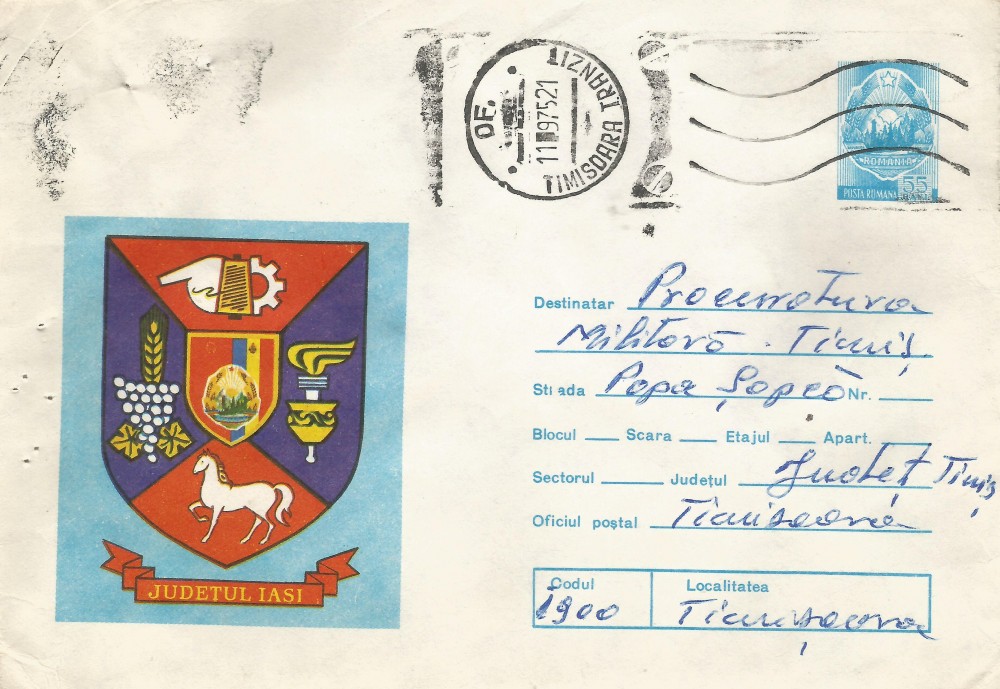 DE.
TIMISOARA TRANZIT
11 97521
ROMANIA
POSTA ROMANA
55
BANI
Destinatar Procuratura
Militară - Timiș
Strada Popa Șapcă Nr.
Blocul Scara Etajul Apart.
Sectorul Județul Județ Timiș
Oficiul poștal Timisoara
Codul Localitatea
1900 Timișoara
JUDEȚUL IASI